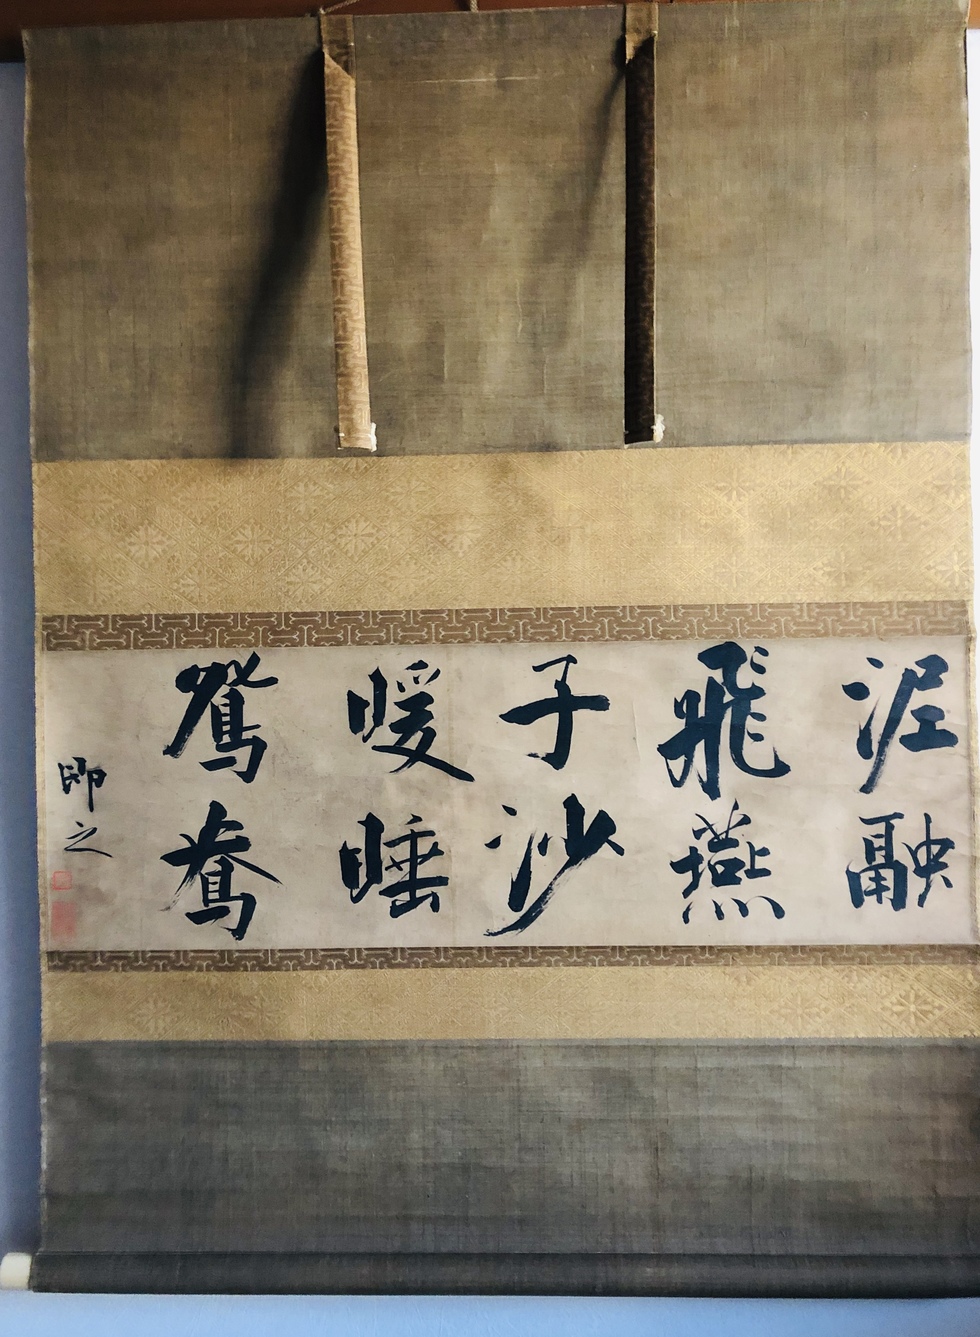 泥融
飛燕
子沙
暖睡
鴛鴦
即之